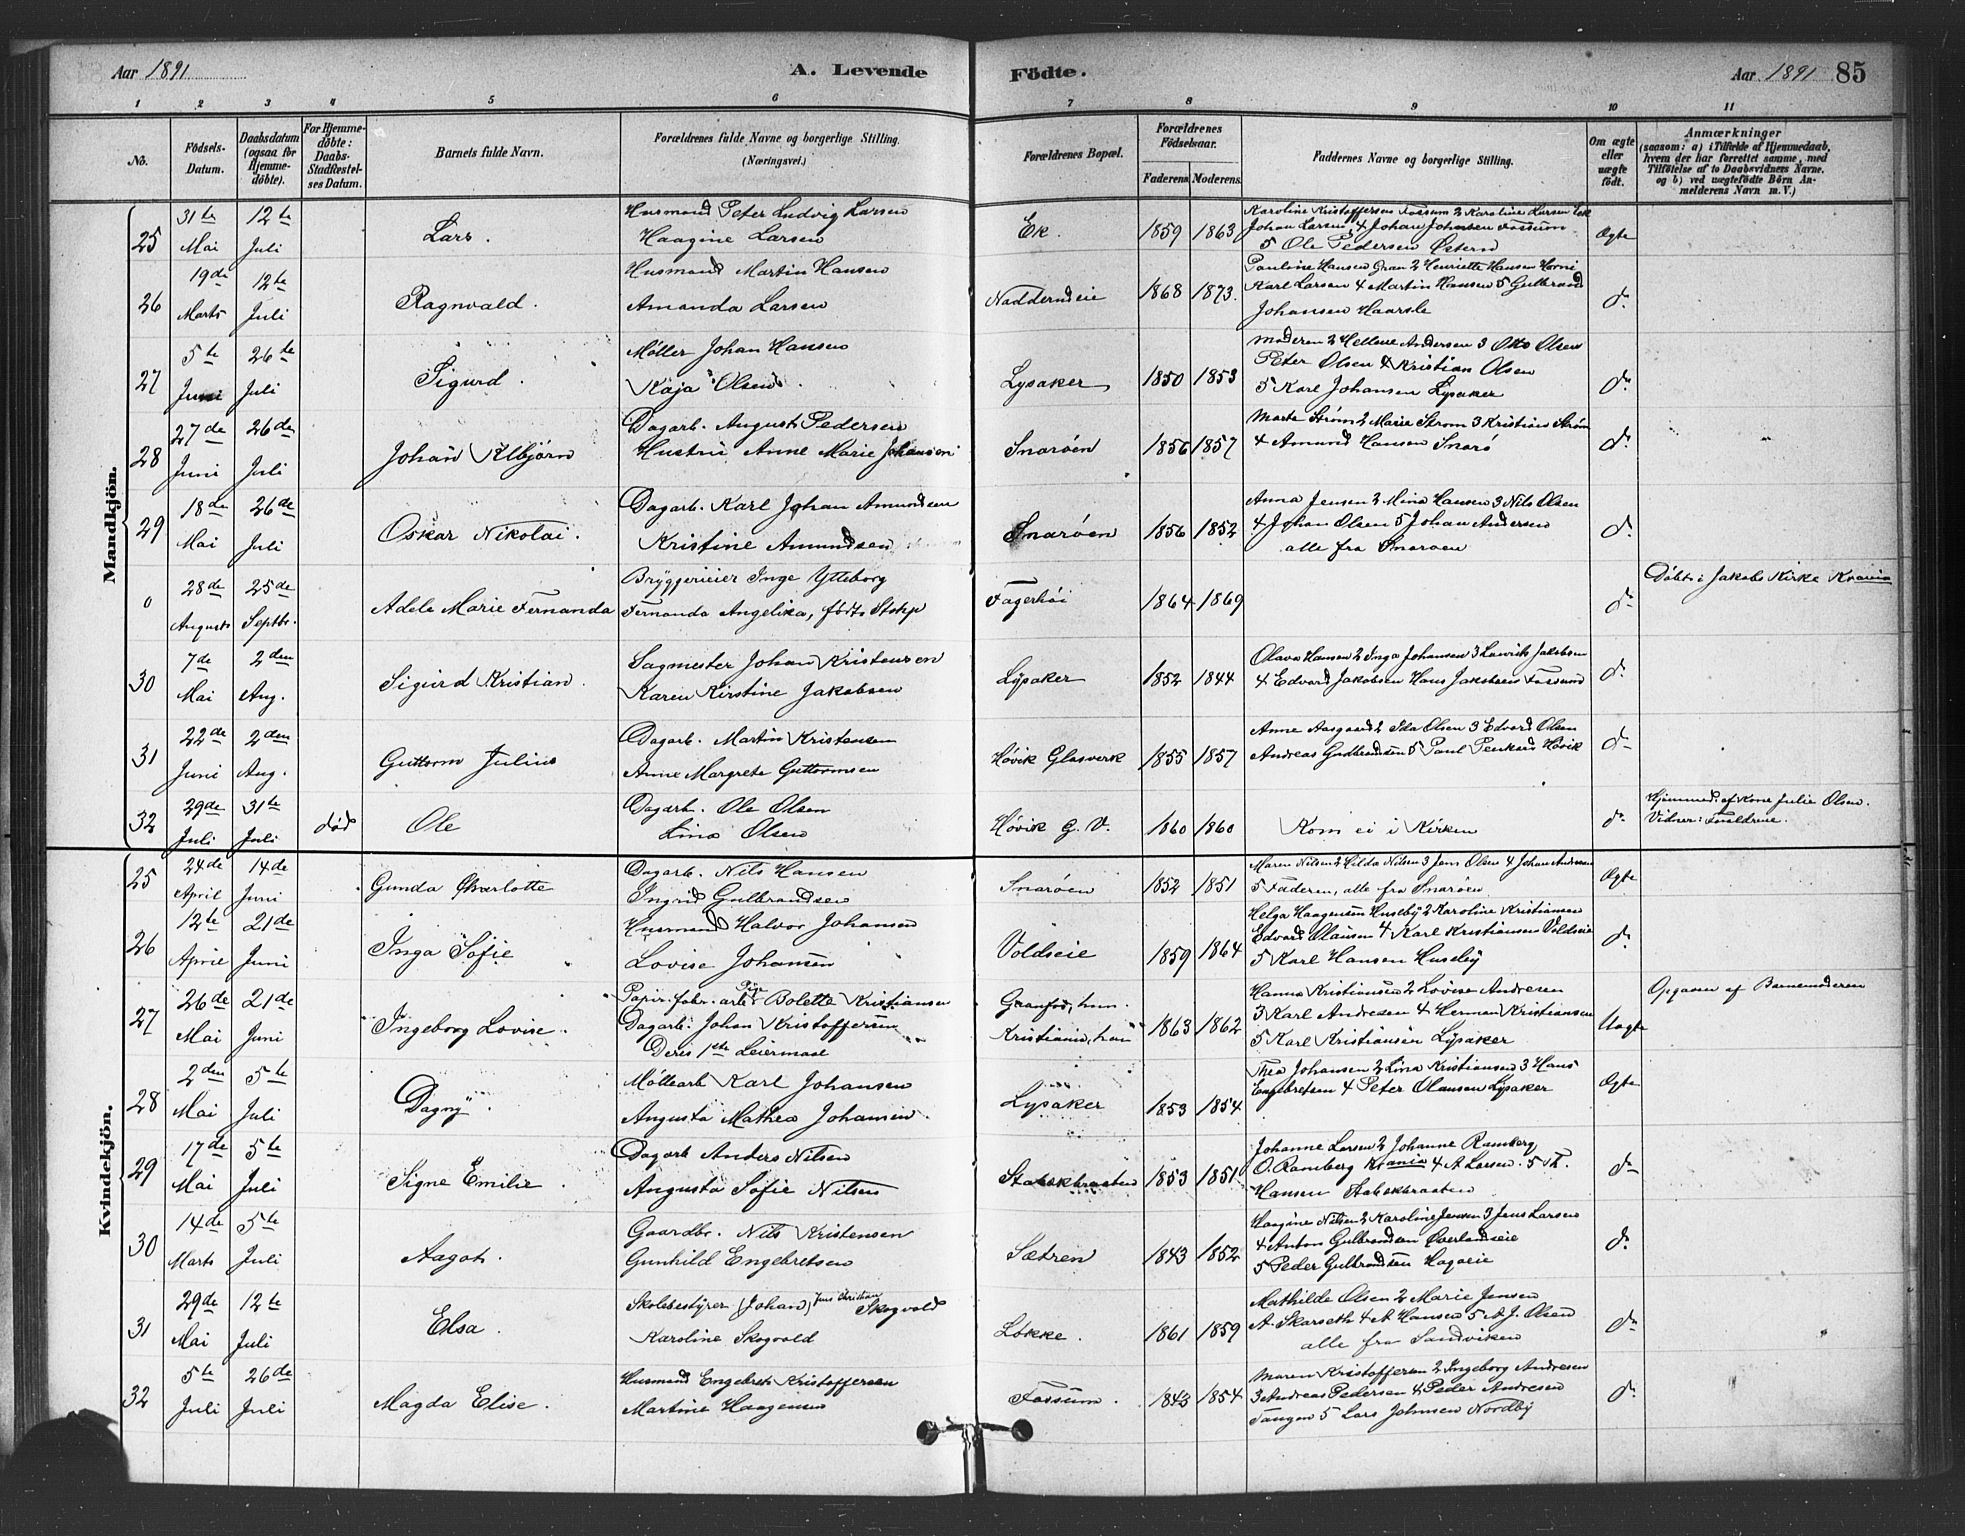 Aar 1891
A. Levende
Födte.
Aar 1891 85
1 2 3 4 5 6 7 8 9 10 11
No.
Födsels-Datum.
Daabsdatum (ogsaa for Hjemme-döbte).
For Hjemme-döbte: Daabs-Stadfæstel-ses Datum.
Barnets fulde Navn.
Forældrenes fulde Navne og borgerlige Stilling. (Næringsvei.)
Forældrenes Bopæl.
Forældrenes Födselsaar.
Faderens Moderens
Faddernes Navne og borgerlige Stilling.
Om ægte eller uægte födt.
Anmærkninger
(saasom: a) i Tilfælde af Hjemmedaab,
hvem der har forrettet samme, med
Tilföielse af to Daabsvidners Navne,
og b) ved uægtefödte Börn An-
melderens Navn m. V.)
Mandkjön.
25 31te Mai 12te Juli Lars. Husmand Peter Ludvig Larsen
Haagine Larsen Ek. 1859 1863 Karoline Kristoffersen Fossum 2 Karoline Larsen Ek
Johan Larsen, 4 Johan Johansen Fossum
5 Ole Pedersen Østern Ægte
26 19de Marts 12te Juli Ragnvald. Husmand Martin Hansen
Amanda Larsen Nadderudeie 1868 1873. Pauline Hansen Gran 2 Henriette Hansen Horni
Karl Larsen 4 Martin Hansen 5 Gulbrand
Johansen Haarsle do
27 5te Juni 26te Juli Sigurd. Møller Johan Hansen
Kaja Olsen. Lysaker 1850 1853 Moderen 2 Hellene Andersen 3 Otto Olsen
Peter Olsen 4 Kristian Olsen
5 Karl Johansen Lysaker do
28 27de Juni 26de Juli Johan Albjørn Dagarb. August Pedersen
Hustru Anne Marie Johansen Snarøen 1856 1857 Marte Strøm 2 Marie Strøm 3 Kristian Strøm
4 Amund Hansen Snarø do
29 18de Mai 26de Juli Oskar Nikolai. Dagarb. Karl Johan Amundsen
Kristine Amundsen Snarøen 1856 1852 Anna Jensen 2 Mina Hansen 3 Nils Olsen
4 Johan Olsen 5 Johan Andersen
alle fra Snarøen do
0 28de August 25de Septbr. Adele Marie Fernanda Bryggerieier Inge Ytteborg
Fernanda Angelika, født Stolp Fagerhøi 1864 1869 do Døbt i Jakobs Kirke Krania
30 7de Mai 2den Aug. Sigurd Kristian. Sagmester Johan Kristensen
Karen Kirstine Jakobsen Lysaker 1852 1844 Olava Hansen 2 Inga Johansen 3 Laurits Jakobsen
4 Edvard Jakobsen Hans Jakobsen Fossum do
31 22de Juni 2den Aug. Guttorm Julius Dagarb. Martin Kristensen
Anne Margrete Guttormsen Høvik Glasverk 1855 1857 Anne Aasgaard 2 Ida Olsen 3 Edvard Olsen
Andreas Gudbrandsen 5 Paul Høvik do
32 29de Juli 31te Juli død Ole Dagarb. Ole Olsen
Lina Olsen Høvik G. V. 1860 1860 Kom ei i Kirken do Hjemmed. af Kone Julie Olsen.
Vidner: Forældrene.
Kvindekjön.
25 24de April 14de Juni Gunda Charlotte Dagarb. Nils Hansen
Ingrid Gulbrandsen Snarøen 1852 1851 Maren Nilsen 2 Hilda Nilsen 3 Jens Olsen 4 Johan Andresen
5 Faderen, alle fra Snarøen Ægte
26 12te April 21de Juni Inga Sofie Husmand Halvor Johansen
Lovise Johansen Voldseie 1859 1864 Helga Haagensen Huseby 2 Karoline Kristiansen
Edvard Olausen 4 Karl Kristiansen Voldseie
5 Karl Hansen Huseby do
27 26de Mai 21de Juni Ingeborg Lovise. Papir.fabr.arb. Pige Bolette Kristiansen
Dagarb. Johan Kristoffersen
Deres 1ste Leiermaal Granfos, hun.
Kristiania, han 1863 1862 Hanna Kristiansen 2 Lovise Andresen
3 Karl Andresen 4 Herman Kristiansen
5 Karl Kristiansen Lysaker Uægte Opgaven af Barnemoderen
28 2den Mai 5te Juli Dagny. Møllearb Karl Johansen
Augusta Mathea Johansen. Lysaker 1853 1854 Thea Johansen 2 Lina Kristiansen 3 Hans
Engebretsen 4 Peter Olausen Lysaker Ægte
29 17de Mai 5te Juli Signe Emilie. Dagarb Anders Nilsen
Augusta Sofie Nilsen Stabækbraaten 1853 1851 Johanne Larsen 2 Johanne Ramberg
O. Ramberg Krania 4 A Larsen. 5 Th.
Hansen Stabækbraaten do
30 14de Marts 5te Juli Aagot. Gaardbr. Nils Kristensen
Gunhild Engebretsen Sætren 1843 1852 Haagine Nilsen 2 Karoline Jensen 3 Jens Larsen
4 Anton Gulbrandsen Øverlandseie
5 Peder Gulbrandsen Hagaeie do
31 29de Mai 12te Juli Elsa. Skolebestyrer (Johan) Jens Christian Skogvold
Karoline Skogvold Løkke. 1861 1859 Mathilde Olsen 2 Marie Jensen
A. Skarseth 4 A Hansen 5 A J. Olsen
alle fra Sandviken do
32 5te Juli 26de Juli Magda Elise. Husmand Engebret Kristoffersen
Martine Haagensen Fossum. 1843 1854 Maren Kristoffersen 2 Ingeborg Andresen
3 Andreas Pedersen 4 Peder Andresen
Tangen 5 Lars Johnsen Nordby do